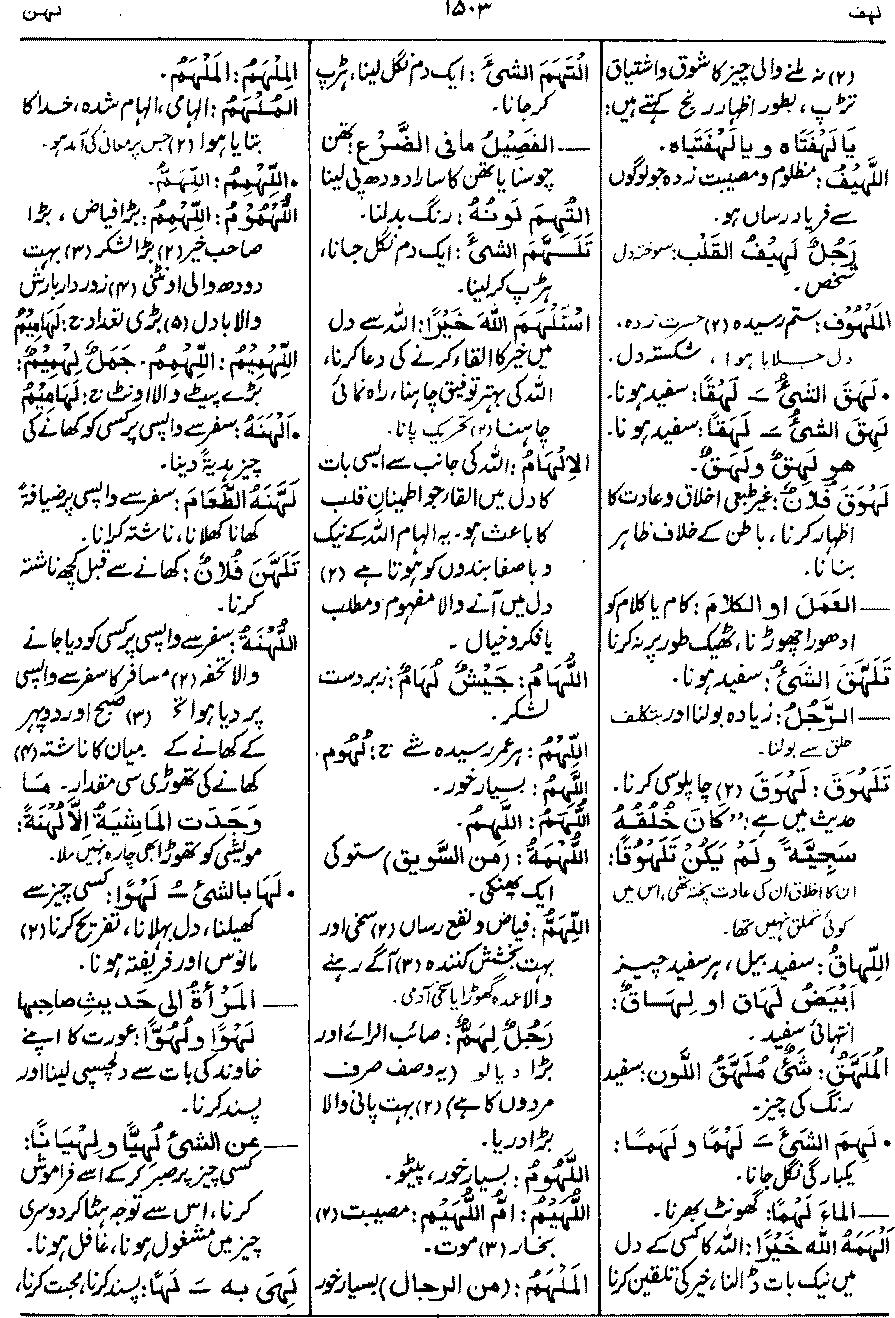 لہف
۱۵۰۳
لہن
(۲) نہ ملنے والی چیز کا شوق و اشتیاق
تڑپ، بطور اظہار رنج کہتے ہیں:
يَا لَهْفَتَاه و يا لَهْفَتَيَاه.
اللَّهِيْفُ: مظلوم و مصیبت زدہ جو لوگوں
سے فریاد رساں ہو۔
رَجُلٌ لَهِيْفُ القَلْب: سوختہ دل
شخص۔
المَلْهُوْف: ستم رسیدہ (۲) حسرت زدہ۔
دل جلایا ہوا، شکستہ دل۔
• لَهَقَ الشيْءُ ـَ لَهْقًا: سفید ہونا۔
لَهِقَ الشيْءُ ـَ لَهَقًا: سفید ہونا۔
هو لَهِقٌ ولَهَقٌ.
لَهْوَقَ فُلانٌ: غیر طبعی اخلاق و عادت کا
اظہار کرنا، باطن کے خلاف ظاہر
بنانا۔
— العَمَلَ او الكلامَ: کام یا کلام کو
ادھورا چھوڑنا، ٹھیک طور پر نہ کرنا
تَلَهَّقَ الشيْءُ: سفید ہونا۔
— الرَّجُلُ: زیادہ بولنا اور بتکلف
حلق سے بولنا۔
تَلَهْوَقَ: لَهْوَقَ (۲) چاپلوسی کرنا۔
حدیث میں ہے: "كَانَ خُلُقُهُ
سَجِيَّةً وَلَمْ يَكُنْ تَلَهْوُقًا:
ان کا اخلاق ان کی عادت پختہ تھی، اس میں
کوئی تملق نہیں تھا۔
اللِّهَاقُ: سفید بیل، ہر سفید چیز
اَبْيَضُ لَهَاق او لِهَاقٌ:
انتہائی سفید۔
المُلَهَّقُ: شَيْءٌ مُلَهَّقُ اللَّون: سفید
رنگ کی چیز۔
• لَهِمَ الشيْءَ ـَ لَهْمًا و لَهَمًا:
یکبارگی نگل جانا۔
— الماءَ لَهْمًا: گھونٹ بھرنا۔
اَلْهَمَهُ اللهُ خَيْرًا: اللہ کا کسی کے دل
میں نیک بات ڈالنا، خیر کی تلقین کرنا
الْتَهَمَ الشيْءَ: ایک دم نگل لینا، ہڑپ
کر جانا۔
— الفَصِيْلُ ما في الضَّرْعِ: تھن
چوسنا یا تھن کا سارا دودھ پی لینا
الْتُهِمَ لَونُهُ: رنگ بدلنا۔
تَلَهَّمَ الشيْءَ: ایک دم نگل جانا،
ہڑپ کر لینا۔
اسْتَلْهَمَ اللهَ خَيْرًا: اللہ سے دل
میں خیر کا القاء کرنے کی دعا کرنا،
اللہ کی بہتر توفیق چاہنا، راہ نمائی
چاہنا (۲) تحریک پانا۔
الإلْهَامُ: اللہ کی جانب سے ایسی بات
کا دل میں القاء جو اطمینان قلب
کا باعث ہو۔ یہ الہام اللہ کے نیک
و باصفا بندوں کو ہوتا ہے (۲)
دل میں آنے والا مفہوم و مطلب
یا فکر و خیال۔
اللُّهَامُ: جَيْشٌ لُهَامٌ: زبردست
لشکر۔
اللِّهْمُ: ہر عمر رسیدہ شے ج: لُهُوم.
اللَّهِمُ: بسیار خور۔
اللُّهَمُ: اللَّهِمُ.
اللُّهْمَةُ: (من السَّويق) ستو کی
ایک پھنکی۔
اللِّهَمُّ: فیاض و نفع رساں (۲) سخی اور
بہت بخشش کنندہ (۳) آگے رہنے
والا عمدہ گھوڑا یا سخی آدمی۔
رَجُلٌ لِهَمٌّ: صائب الرائے اور
بڑا دیالو (یہ وصف صرف
مردوں کا ہے) (۲) بہت پانی والا
بڑا دریا۔
اللَّهُوْمُ: بسیار خور، پیٹو۔
اللُّهَيْمُ: امُّ اللُّهَيْمِ: مصیبت (۲)
بخار (۳) موت۔
المَلْهَمُ: (من الرجال) بسیار خور
المِلْهَمُ: المَلْهَمُ.
المُلْهَمُ: الہامی، الہام شدہ، خدا کا
بتایا ہوا (۲) جس پر معانی کی آمد ہو۔
• اللِّهْمِمُ: اللِّهَمُّ.
اللُّهْمُوْمُ: اللِّهْمِمُ: بڑا فیاض، بڑا
صاحب خیر (۲) بڑا لشکر (۳) بہت
دودھ والی اونٹنی (۴) زوردار بارش
والا بادل (۵) بڑی تعداد ج: لَهَامِيْمُ
اللِّهْمِيْمُ: اللِّهْمِمُ۔ جَمَلٌ لِهْمِيْمٌ:
بڑے پیٹ والا اونٹ ج: لَهَامِيْمُ
• اَلْهَنَهُ: سفر سے واپسی پر کسی کو کھانے کی
چیز ہدیۃً دینا۔
لَهَّنَهُ الطَّعَامَ: سفر سے واپسی پر ضیافۃً
کھانا کھلانا، ناشتہ کرانا۔
تَلَهَّنَ فُلانٌ: کھانے سے قبل کچھ ناشتہ
کرنا۔
اللُّهْنَةُ: سفر سے واپسی پر کسی کو دیا جانے
والا تحفہ (۲) مسافر کا سفر سے واپسی
پر دیا ہوا (۳) صبح اور دوپہر
کے کھانے کے میان کا ناشتہ (۴)
کھانے کی تھوڑی سی مقدار۔ مَا
وَجَدَتِ المَاشِيَةُ الاَّ لُهْنَةً:
مویشی کو تھوڑا بھی چارہ نہیں ملا۔
• لَهَا بالشيْءِ ـُ لَهْوًا: کسی چیز سے
کھیلنا، دل بہلانا، تفریح کرنا (۲)
مانوس اور فریفتہ ہونا۔
— المَرْأةُ الى حَديثِ صاحبِها
لَهْوًا و لُهُوًّا: عورت کا اپنے
خاوند کی بات سے دلچسپی لینا اور
پسند کرنا۔
— عن الشيْءِ لُهِيًّا و لِهْيَانًا:
کسی چیز پر صبر کر کے اسے فراموش
کرنا، اس سے توجہ ہٹا کر دوسری
چیز میں مشغول ہونا، غافل ہونا۔
لَهِيَ به ـَ لَهًا: پسند کرنا، محبت کرنا،